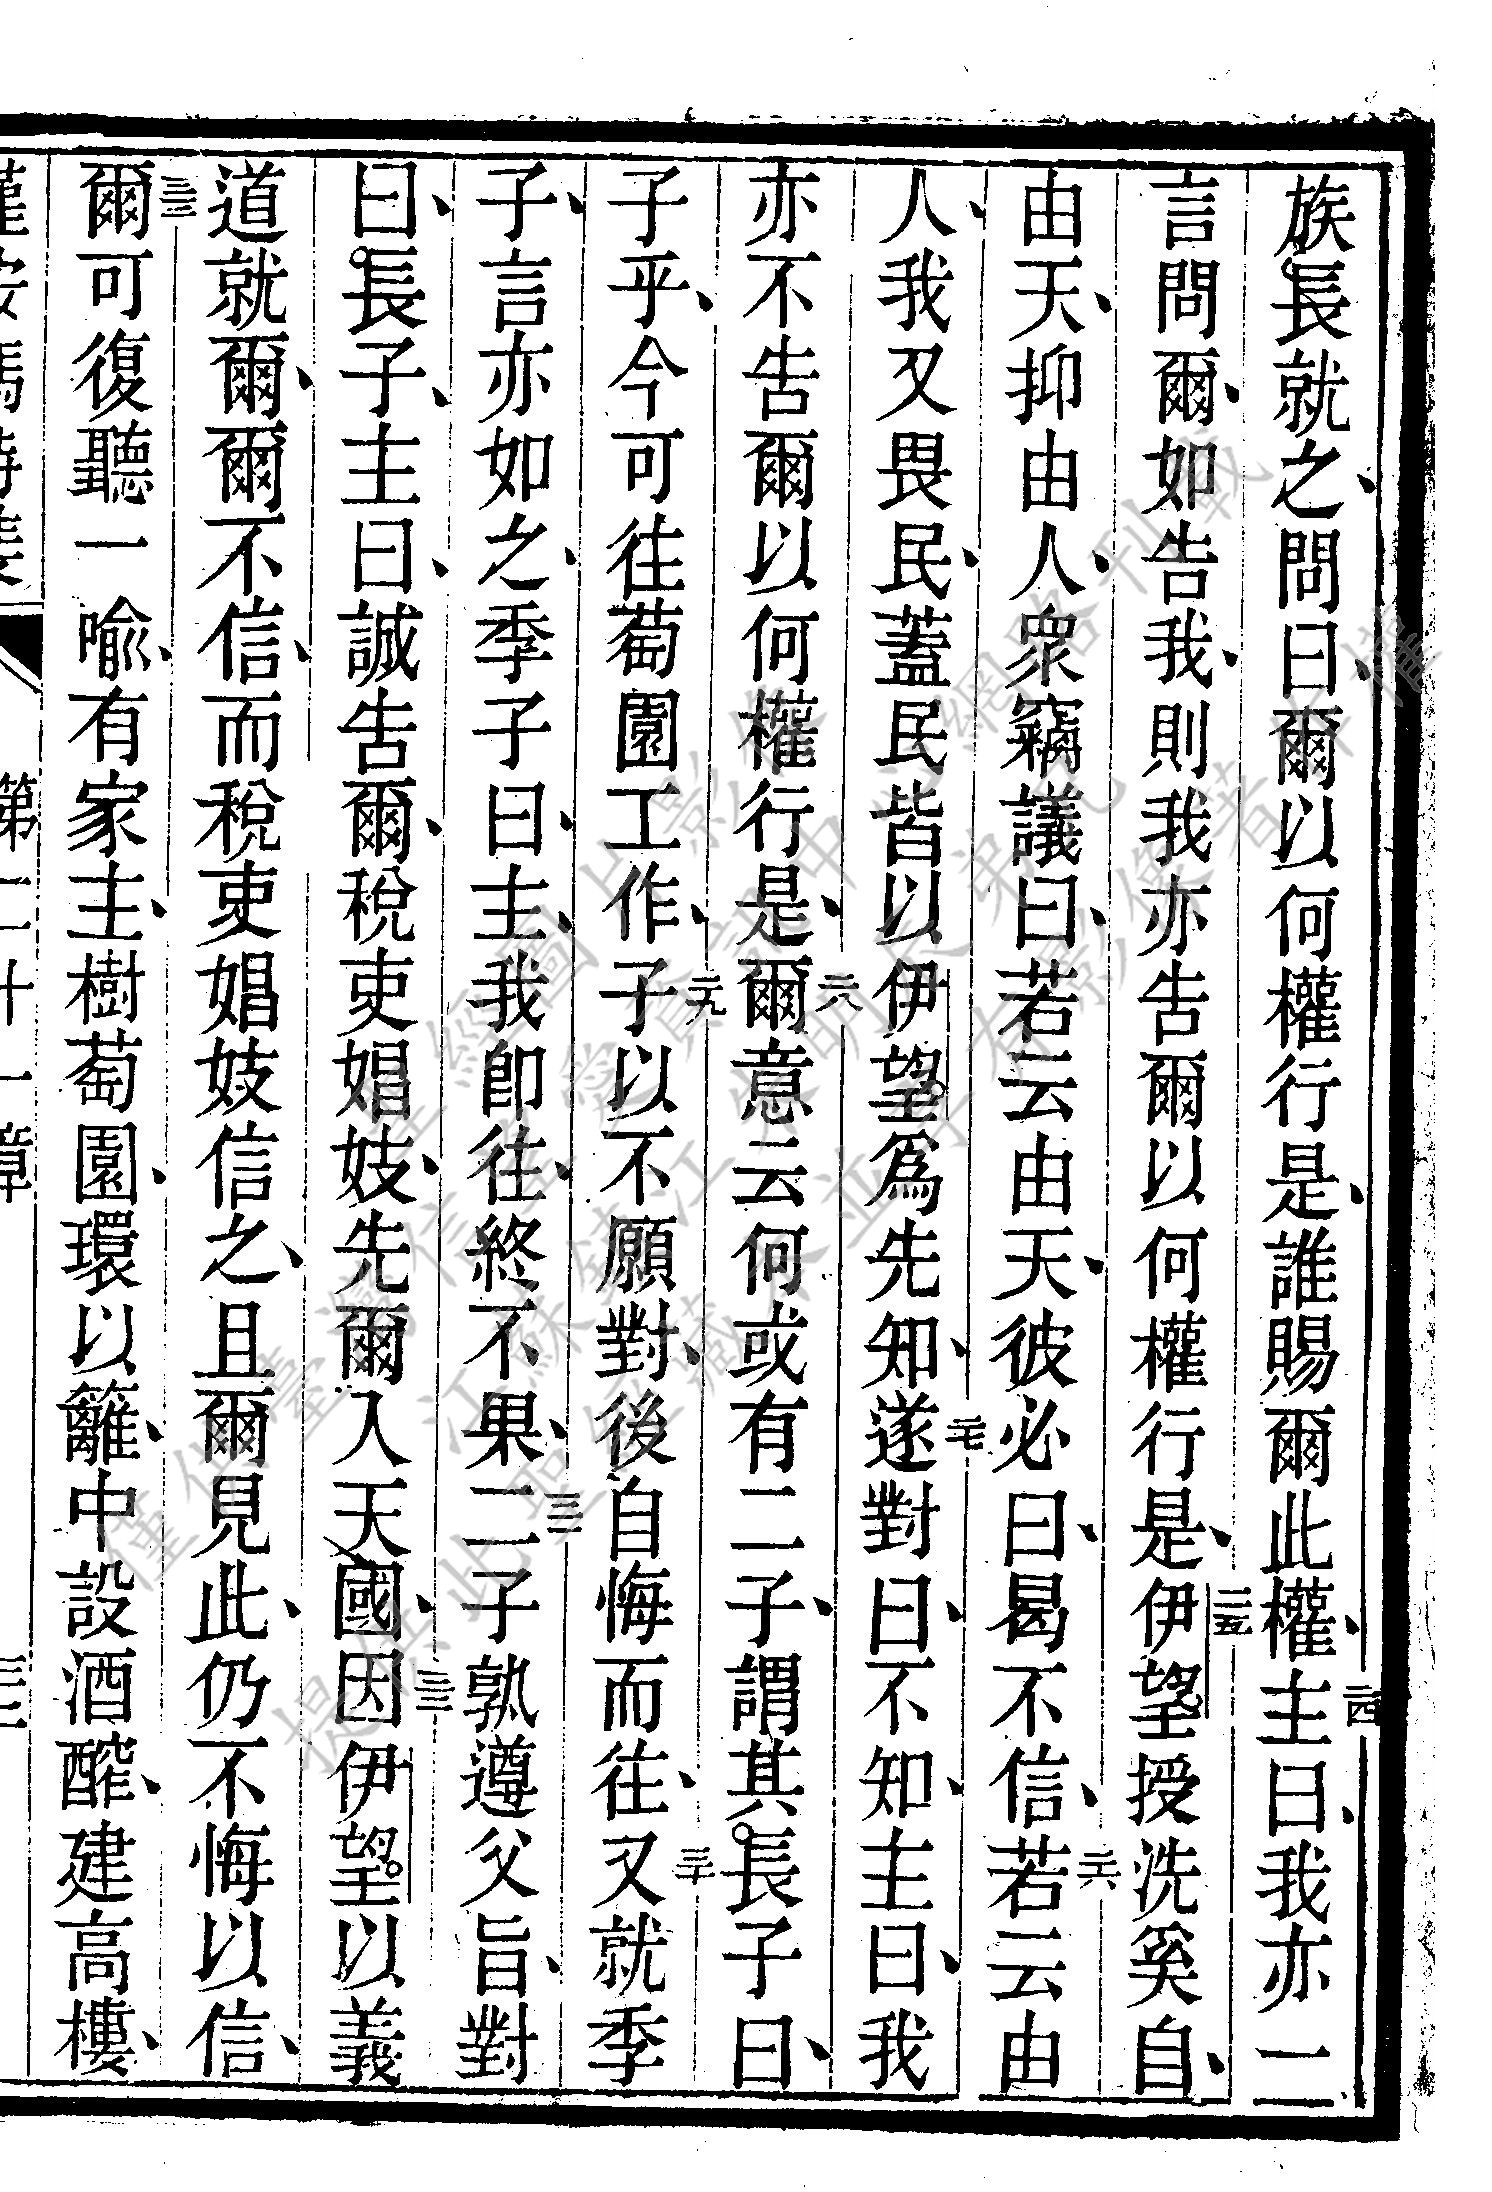 族長就之、問曰、爾以何權行是、誰賜爾此權、二四主曰、我亦一
言問爾、如告我、則我亦告爾以何權行是、二五伊望授洗奚自、
由天、抑由人、衆竊議曰、若云由天、彼必曰、曷不信、二六若云由
人、我又畏民、蓋民皆以伊望爲先知、二七遂對曰、不知、主曰、我
亦不告爾以何權行是、二八爾意云何、或有二子、謂其長子曰、
子乎、今可往萄園工作、二九子以不願對、後自悔而往、三十又就季
子、言亦如之、季子曰、主、我卽往、終不果、三一二子孰遵父旨、對
曰、長子、主曰、誠告爾、稅吏娼妓、先爾入天國、三二因伊望以義
道就爾、爾不信、而稅吏娼妓信之、且爾見此、仍不悔以信、
三三爾可復聽一喻、有家主、樹萄園、環以籬、中設酒醡、建高樓、
第二十一章
僅供臺灣聖經圖片影像
提供此聖經